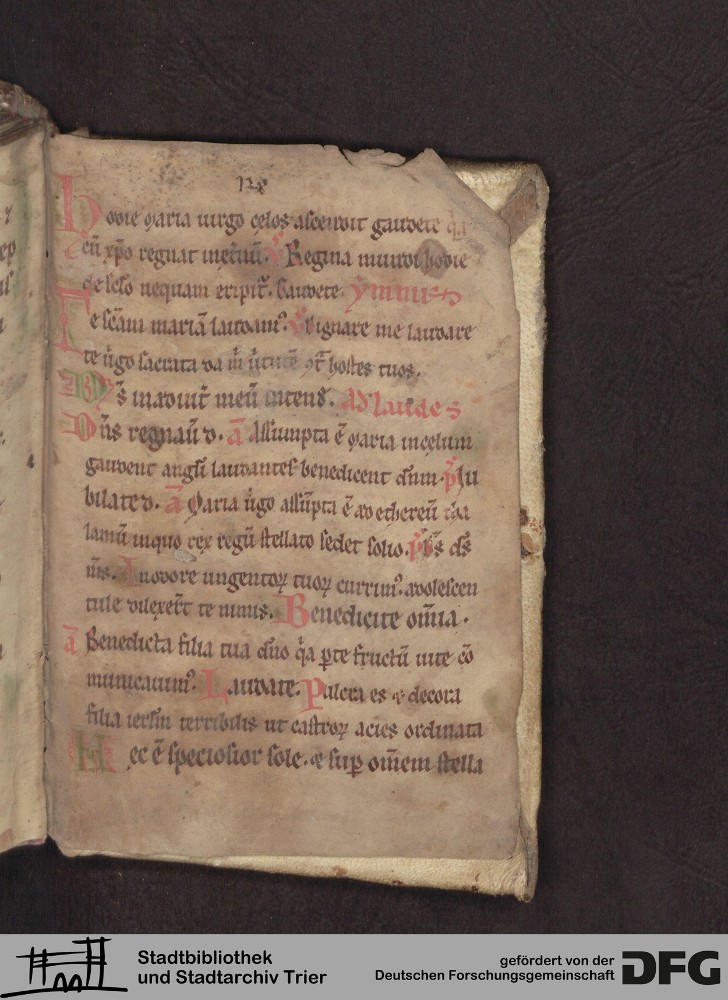 128
Hodie maria uirgo celos ascendit gaudete q̇a
cū xp̄o regnat inet̄nū. V̇ Regina mundi hodie
de sclo nequam eripit᷑. Gaudete. ẏmnus
Te scām mariā laudamꝰ. V̇ Dignare me laudare
te ũgo sacrata da m̃ ũtutē ꝯt̃ hostes tuos.
Dꝰs inadiut̃ meū intend᷑. Ad laudes
Dñs regnauͥ d. a᷑ Assumpta ē maria incelum
gaudent angli laudantes benedicent dñm. p̃s Iu
bilate d. a᷑ Maria ũgo assūpta ē ad ethereū tha
lamū inquo rex regū stellato sedet solio. p̃s Ds ds
ms. In odore ungentoꝝ tuoꝝ currimꝰ. adolescen
tule dilexer̃t te nimis. Benedicite om̄ia.
a᷑ Benedicta filia tua dño q̇a ꝑte fructū uite cō
municauimꝰ. Laudate. Pulcra es ⁊ decora
filia ierl̄m terribilis ut castroꝝ acies ordinata
Hec ē speciosior sole. ⁊ suꝑ om̄em stella
Stadtbibliothek
und Stadtarchiv Trier
gefördert von der
Deutschen Forschungsgemeinschaft
DFG